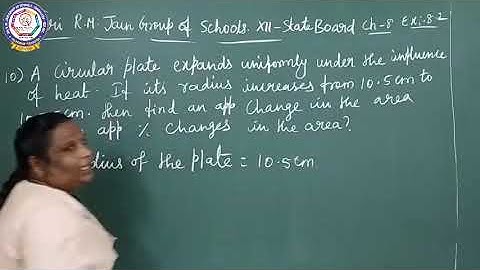 ri R.M. Jain Group of Schools. XII - State Board Ch-8 Ex:8.2
10) A circular plate expands uniformly under the influence
of heat. If its radius increases from 10.5cm to
cm. then find an app change in the area
app % changes in the area?
dius of the plate = 10.5cm